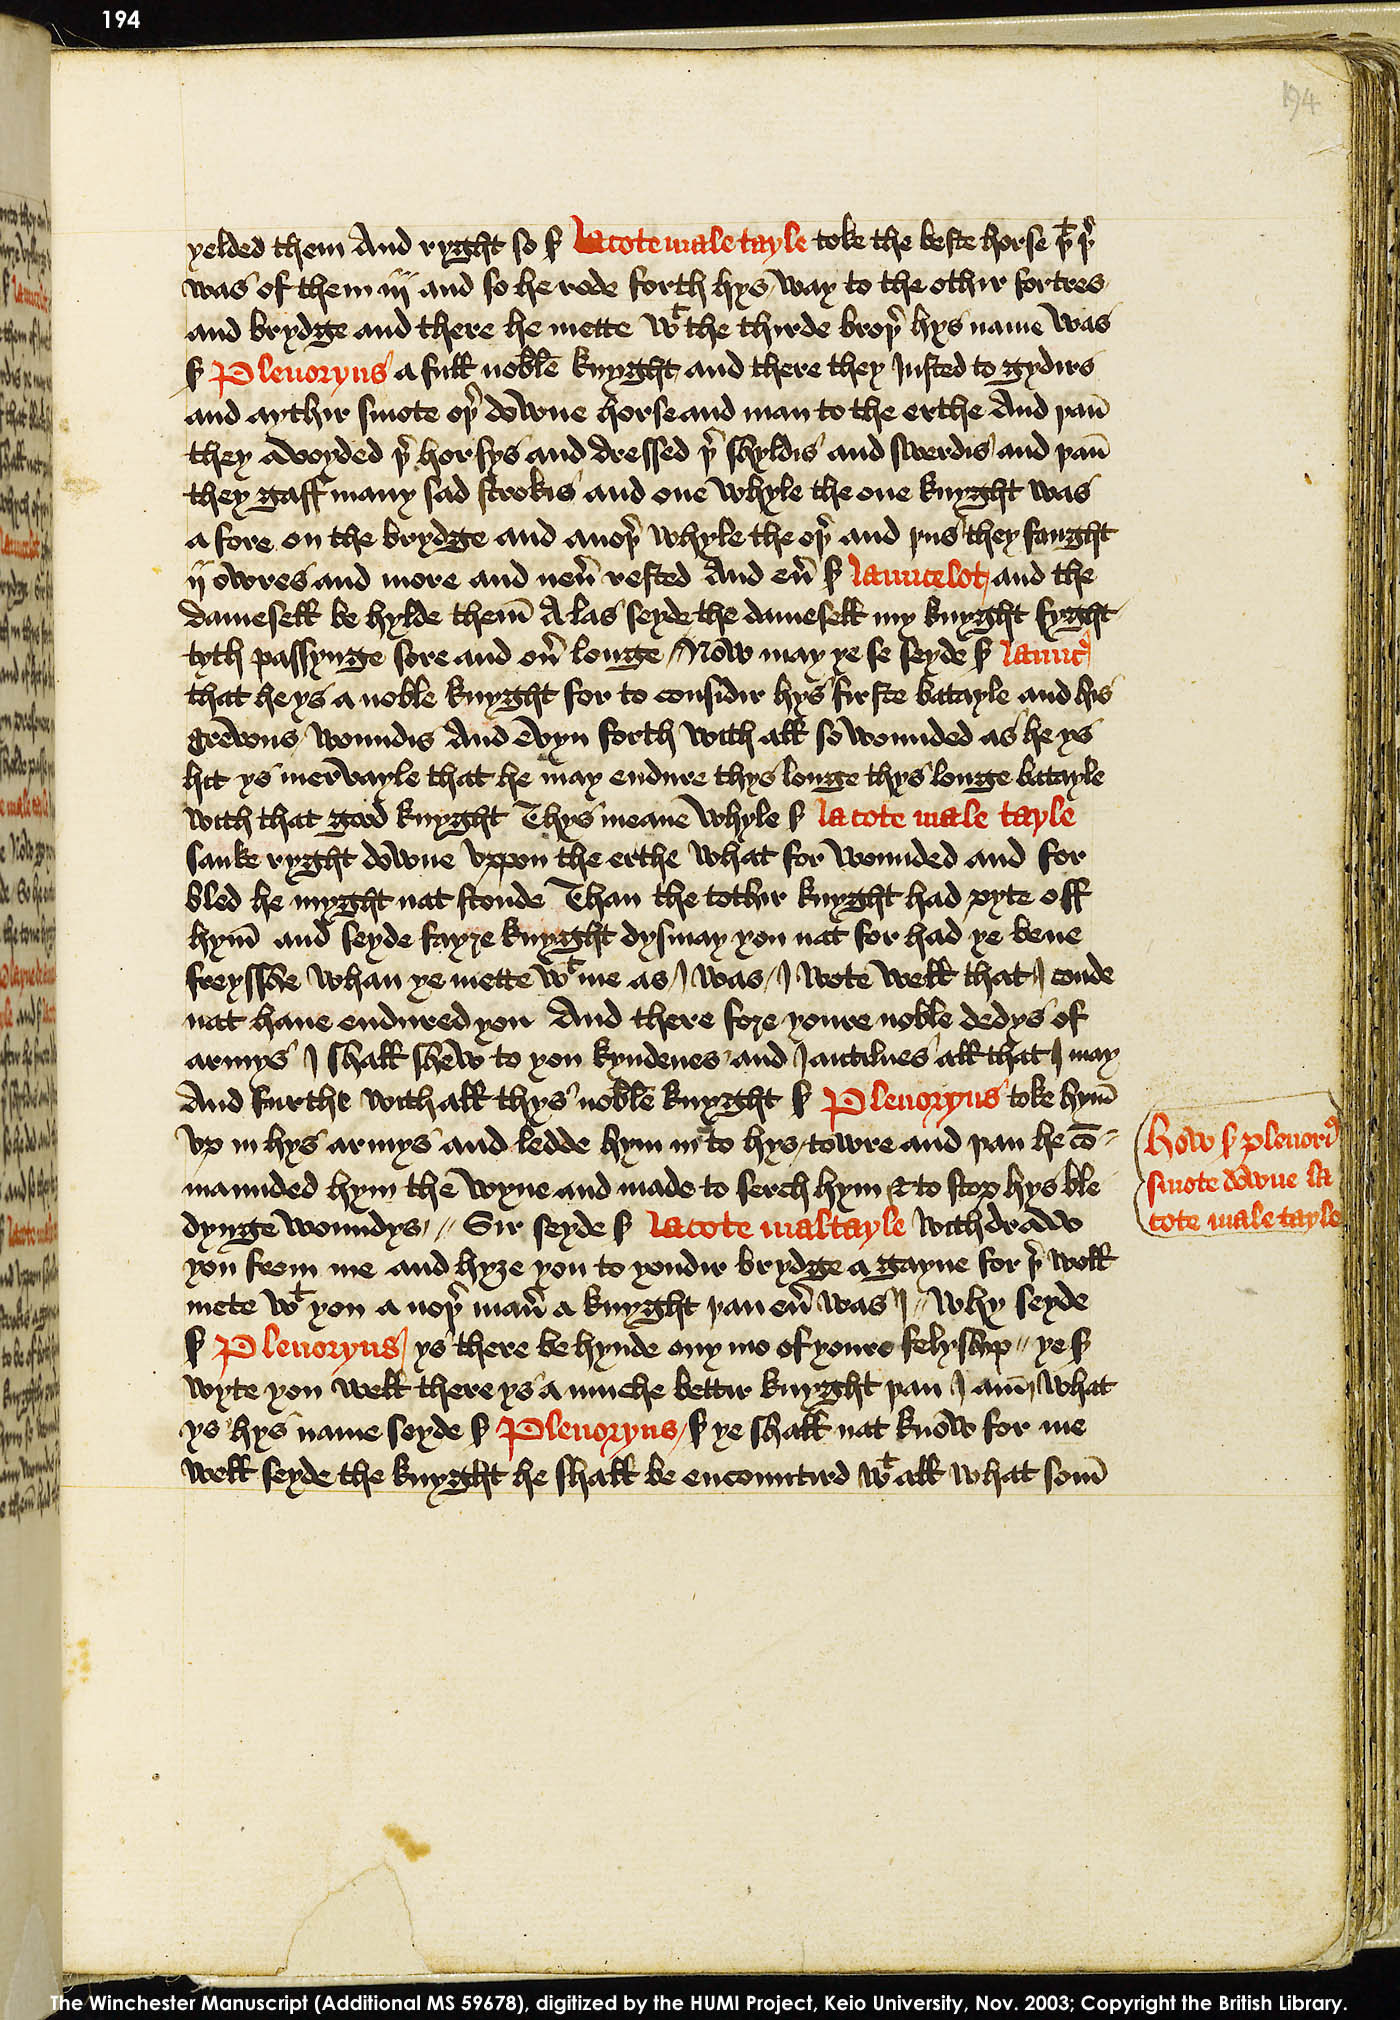 194
194
yelded them And ryght so ẜ La cote male tayle toke the beste horse þt þr
was of them iij and so he rode forth hys way to the othir fortres
and brydge and there he mette wt the thirde broþr hys name was
ẜ Plenoryus a full noble knyght and there they Justed to gydirs
and aythir smote oþr downe horse and man to the erthe And þan̄
they avoyded þr horsys and dressed þr shyldis and swerdis and þan̄
they gaff many sad strokis and one whyle the one knyght was
a fore on the brydge and anoþr whyle the oþr and þus they faught
ij owres and more and neũ rested And eũ ẜ Launcelot and the
damesell be hylde them̄ Alas seyde the damesell my knyght fyght
tyth passynge sore and oũ longe / Now may ye se seyde ẜ Launc̉
that he ys a noble knyght for to considir hys firste batayle and his
grevous woundis And evyn forth with all so wounded as he ys
hit ys mervayle that he may endure thys longe thys longe batayle
with that good knyght Thys meane whyle ẜ La cote male tayle
sanke ryght downe vppon the erthe what for wounded and for
bled he myght nat stonde Than the tothir knyght had pyte off
hym̄ and seyde fayre knyght dysmay you nat for had ye bene
freysshe whan ye mette wt me as / I was / I wote well that I coude
nat haue endured you And there fore youre noble dedys of
armys I shall shew to you kyndenes and Jantilnes all that I may
And furthe with all thys noble knyght ẜ Plenoryus toke hym̄
vp in hys armys and ledde hym in to hys towre and þan he cō=
maunded hym the wyne and made to serch hym & to stop hys ble
dynge woundys // Sir seyde ẜ La cote maltayle with draw
you from me and hyȝe you to yondir brydge a gayne for þr woll
mete wt you a noþr man̄ a knyght þan eũ was I // Why seyde
ẜ Plenoryus / ys there be hynde ony mo of youre felyship // ye ẜ
wyte you well there ys a muche bettir knyght þan I am̄ / What
ys hys name seyde ẜ Plenoryus / ẜ ye shall nat know for me
well seyde the knyght he shall be encountird wt all what som̄
How ẜ plenori9
smote downe la
cote male tayle
The Winchester Manuscript (Additional MS 59678), digitized by the HUMI Project, Keio University, Nov. 2003; Copyright the British Library.